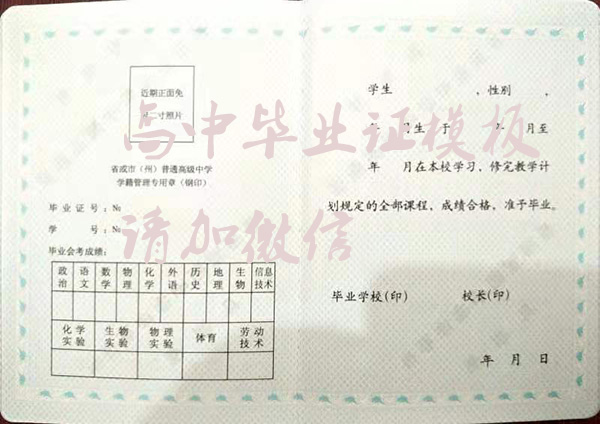 近期正面免
冠二寸照片
省或市（州）普通高级中学
学籍管理专用章（钢印）
毕业证号：№
学　　号：№
毕业会考成绩：
政治 语文 数学 物理 化学 外语 历史 地理 生物 信息技术
化学实验 生物实验 物理实验 体育 劳动技术
学生　　　　　，性别　　，
年　月生 于　　　年　月至
年　月在本校学习、修完教学计
划规定的全部课程、成绩合格、准予毕业。
毕业学校(印)　　　校长(印)
年 月 日
高中毕业证模板
请加微信